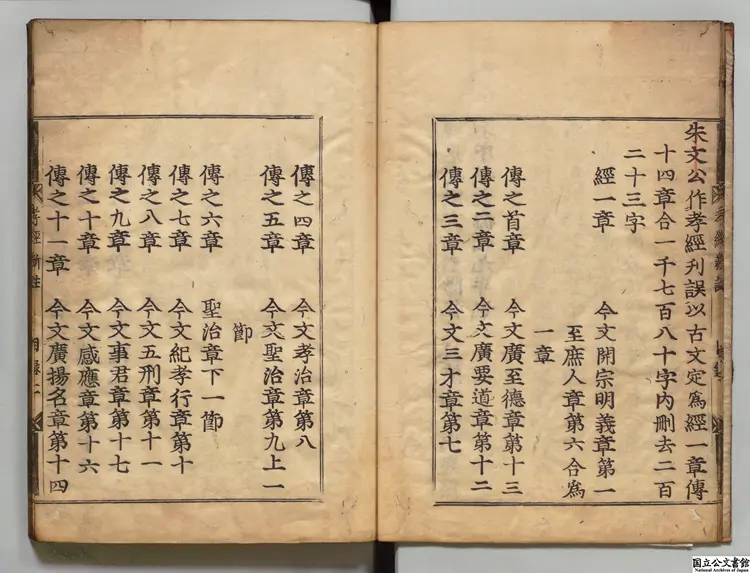 朱文公作孝經刋誤以古文定爲經一章傳
十四章合一千七百八十字内刪去二百
二十三字
經一章 今文開宗明義章第一
至庶人章第六合爲
一章
傳之首章 今文廣至德章第十三
傳之二章 今文廣要道章第十二
傳之三章 今文三才章第七
傳之四章 今文孝治章第八
傳之五章 今文聖治章第九上一
節
傳之六章 聖治章下一節
傳之七章 今文紀孝行章第十
傳之八章 今文五刑章第十一
傳之九章 今文事君章第十七
傳之十章 今文感應章第十六
傳之十一章 今文廣揚名章第十四
孝經 新註 目錄二
国立公文書館
National Archives of Japan